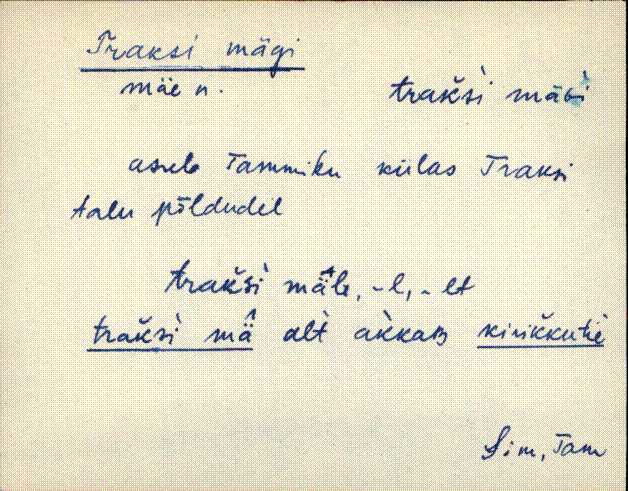 Traksi mägi
mäe n. trakši mäGi
asub Tammiku külas Traksi
talu põldudel
trakši mä̂le, -l, -lt
trakši mä̂ alt akkaB kirikkutiè
Sim, Tam